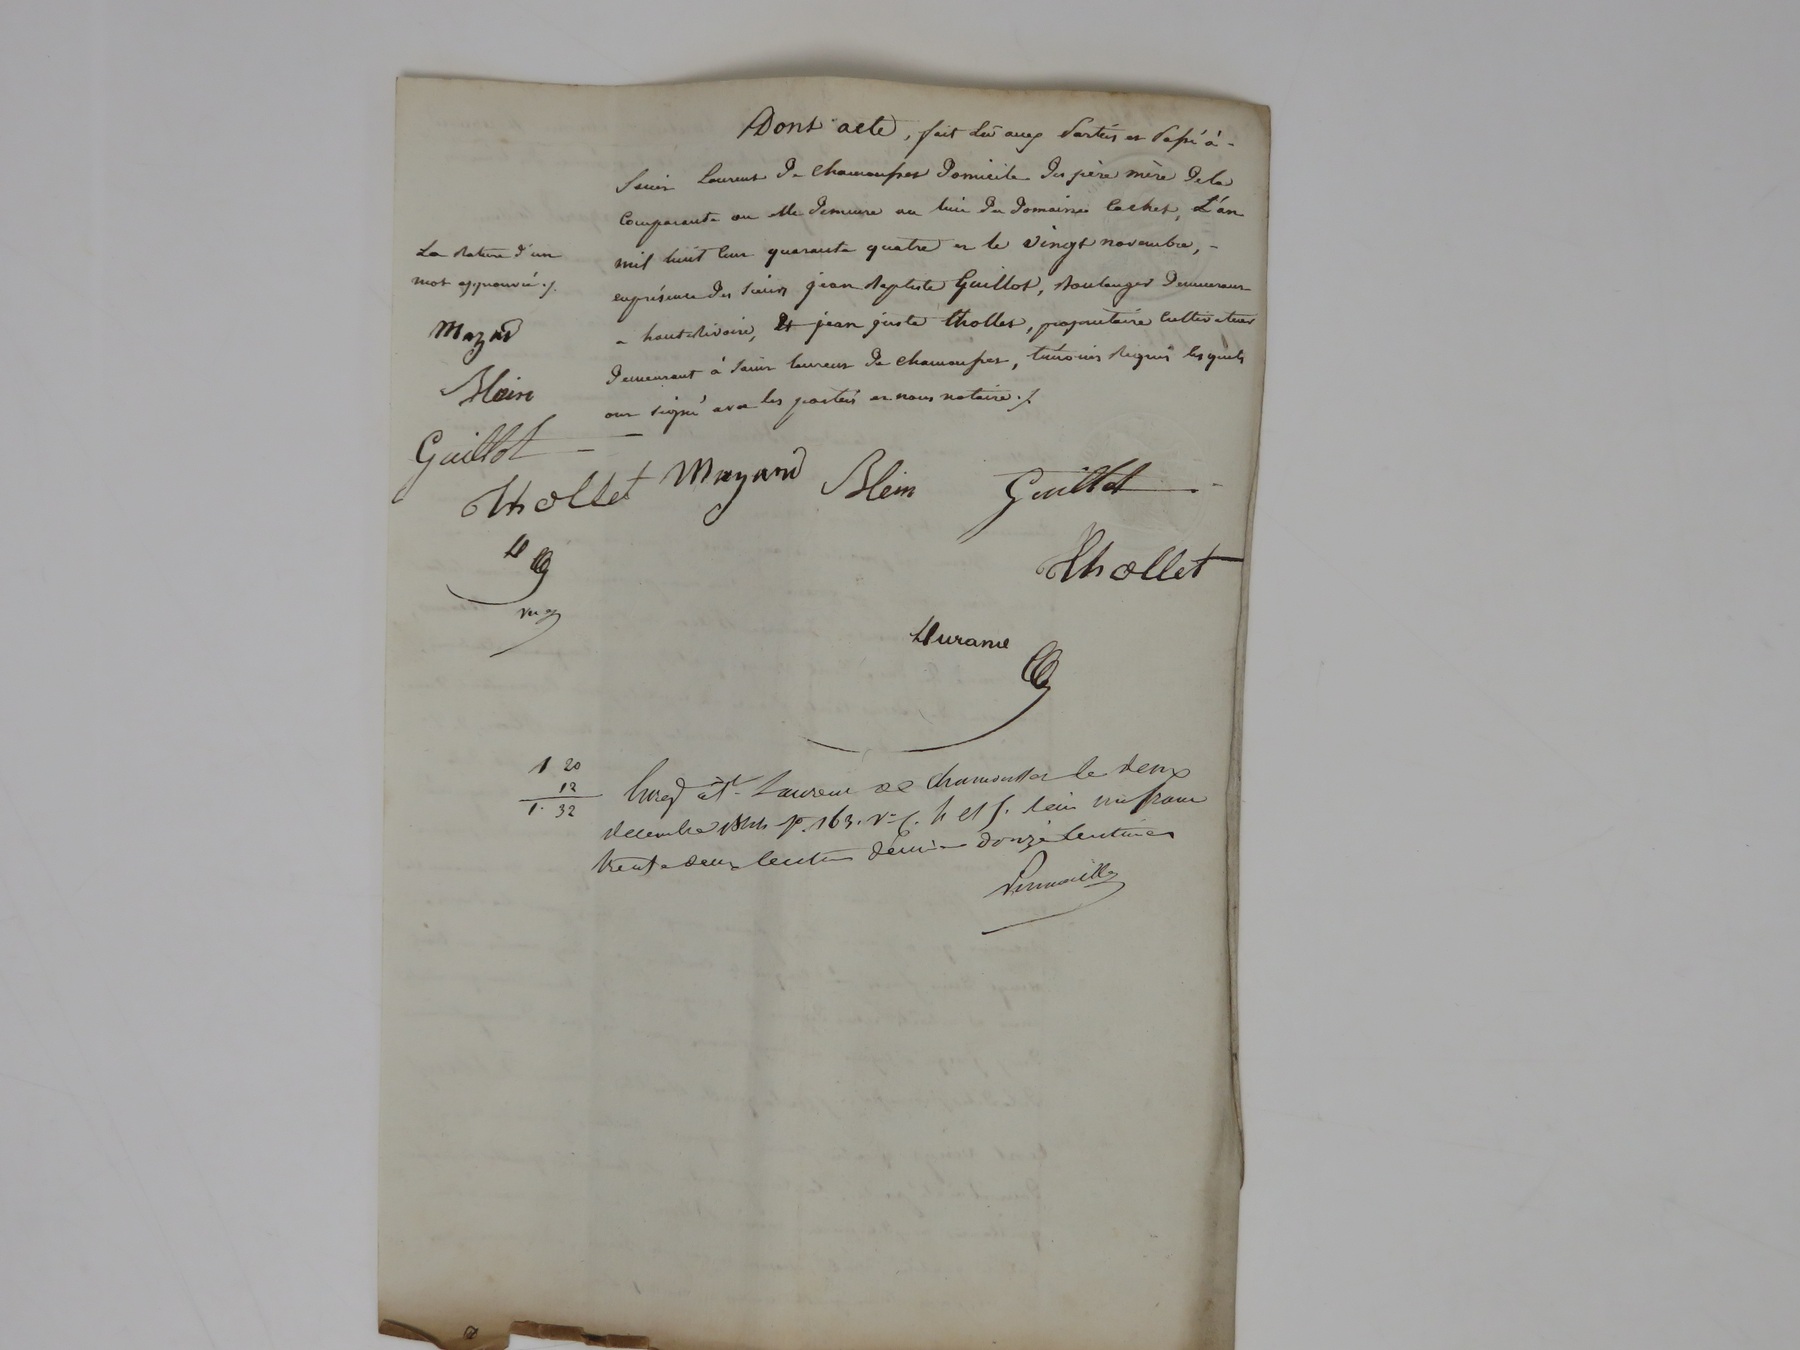 Dont acte, fait lû aux Parties et Passé à -
Saint Laurent De chamousset Domicile Des père mère De la
Comparante ou elle Demeure au lieu Du Domaine Cachet, L'an
mil huit cent quarante quatre et le vingt novembre, -
en présence Des Sieurs jean Baptiste Guillot, Boulanger Demeurant
a haute Rivoire, Et jean juste thollet, propriétaire Cultivateur
Demeurant à Saint laurent De chamousset, témoins Signés lesquels
ont Signé avec les parties et nous notaire ./.
La Rature d'un
mot approuvée ./.
Mazard
Blein
Guillot
Thollet Mazard Blein Guillot
Thollet
D
Durand
1 20
12
1. 32
Enreg à St. Laurent de chamousset le deux
decembre 1844 f°. 163. v° c. 4 et 5. reçu un franc
trente deux centimes décime douze centimes